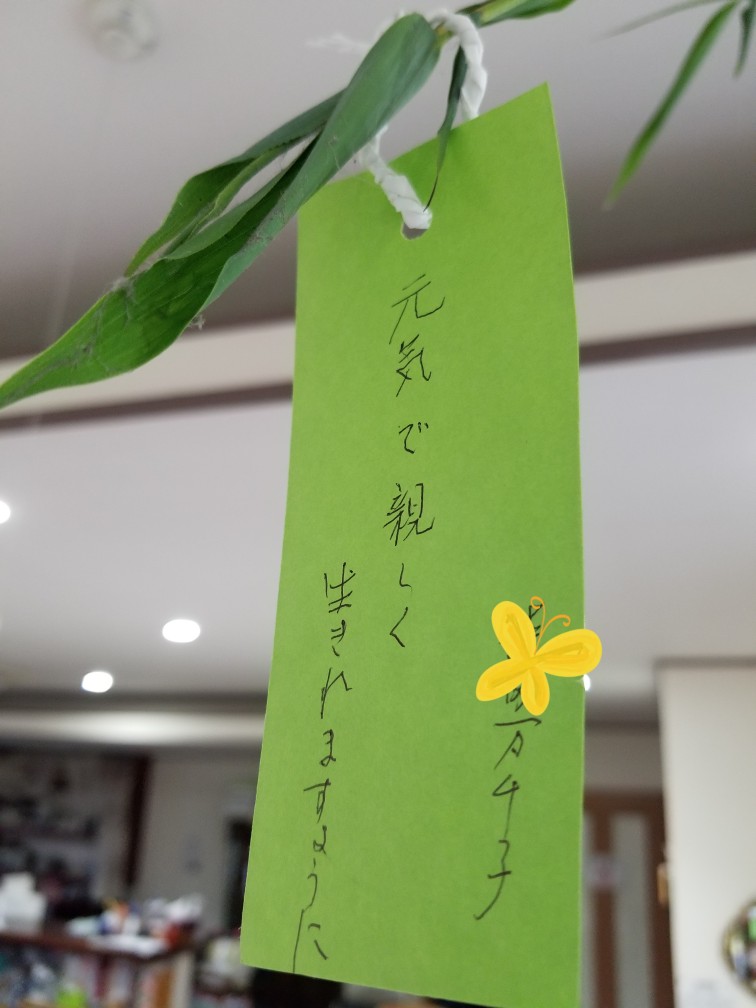 万千子
元気で親しく
生きれますように